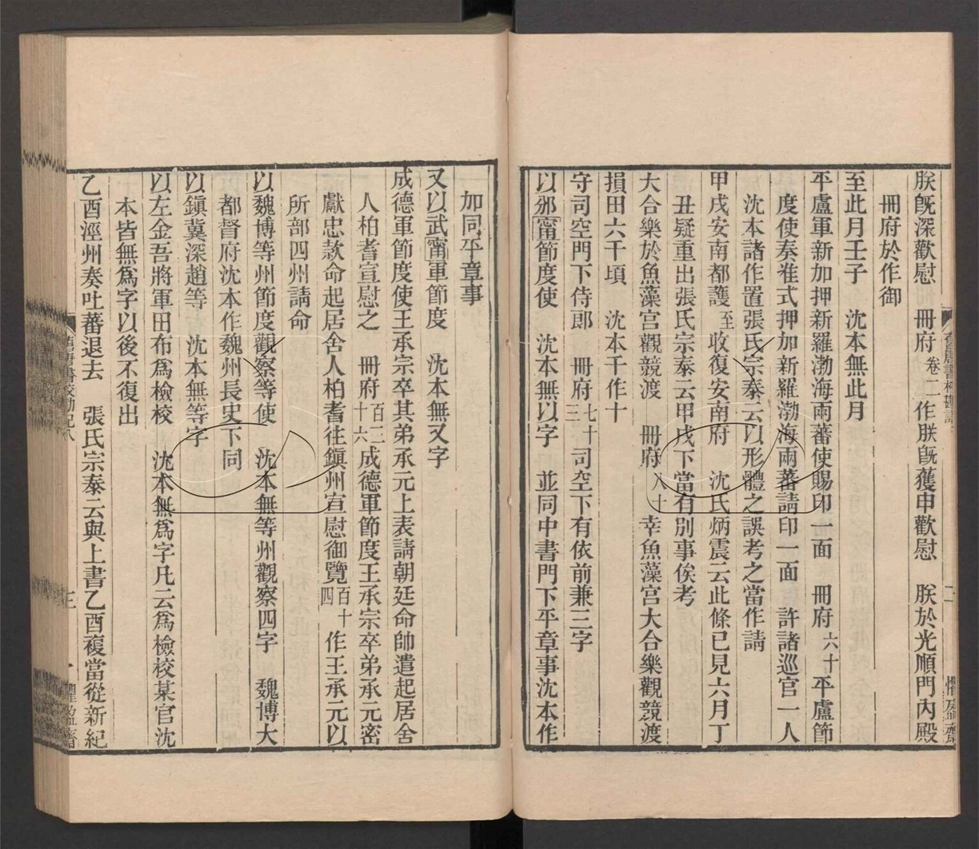 朕旣深歡慰　冊府卷二作朕旣獲申歡慰　朕於光順門內殿
冊府於作御
至此月壬子　沈本無此月
平盧軍新加押新羅渤海兩蕃使賜印一面　冊府六十平盧節
度使奏准式押加新羅渤海兩蕃請印一面　許諸巡官一人
沈本諸作置張氏宗泰云以形體之誤考之當作請
甲戌安南都護至收復安南府　沈氏炳震云此條已見六月丁
丑疑重出張氏宗泰云甲戌下當有別事俟考
大合樂於魚藻宮觀競渡　冊府八十幸魚藻宮大合樂觀競渡
損田六千頃　沈本千作十
守司空門下侍郎　冊府七十三司空下有依前兼三字
以邠甯節度使　沈本無以字　並同中書門下平章事沈本作
加同平章事
又以武甯軍節度　沈本無又字
成德軍節度使王承宗卒其弟承元上表請朝廷命帥遣起居舍
人柏耆宣慰之　冊府百二十六成德軍節度王承宗卒弟承元密
獻忠款命起居舍人柏耆往鎭州宣慰御覽百十四作王承元以
所部四州請命
以魏博等州節度觀察等使　沈本無等州觀察四字　魏博大
都督府沈本作魏州長史下同
以鎭冀深趙等　沈本無等字
以左金吾將軍田布爲檢校　沈本無爲字凡云爲檢校某官沈
本皆無爲字以後不復出
乙酉涇州奏吐蕃退去　張氏宗泰云與上書乙酉複當從新紀
舊唐書校勘記八
三
懼盈齋